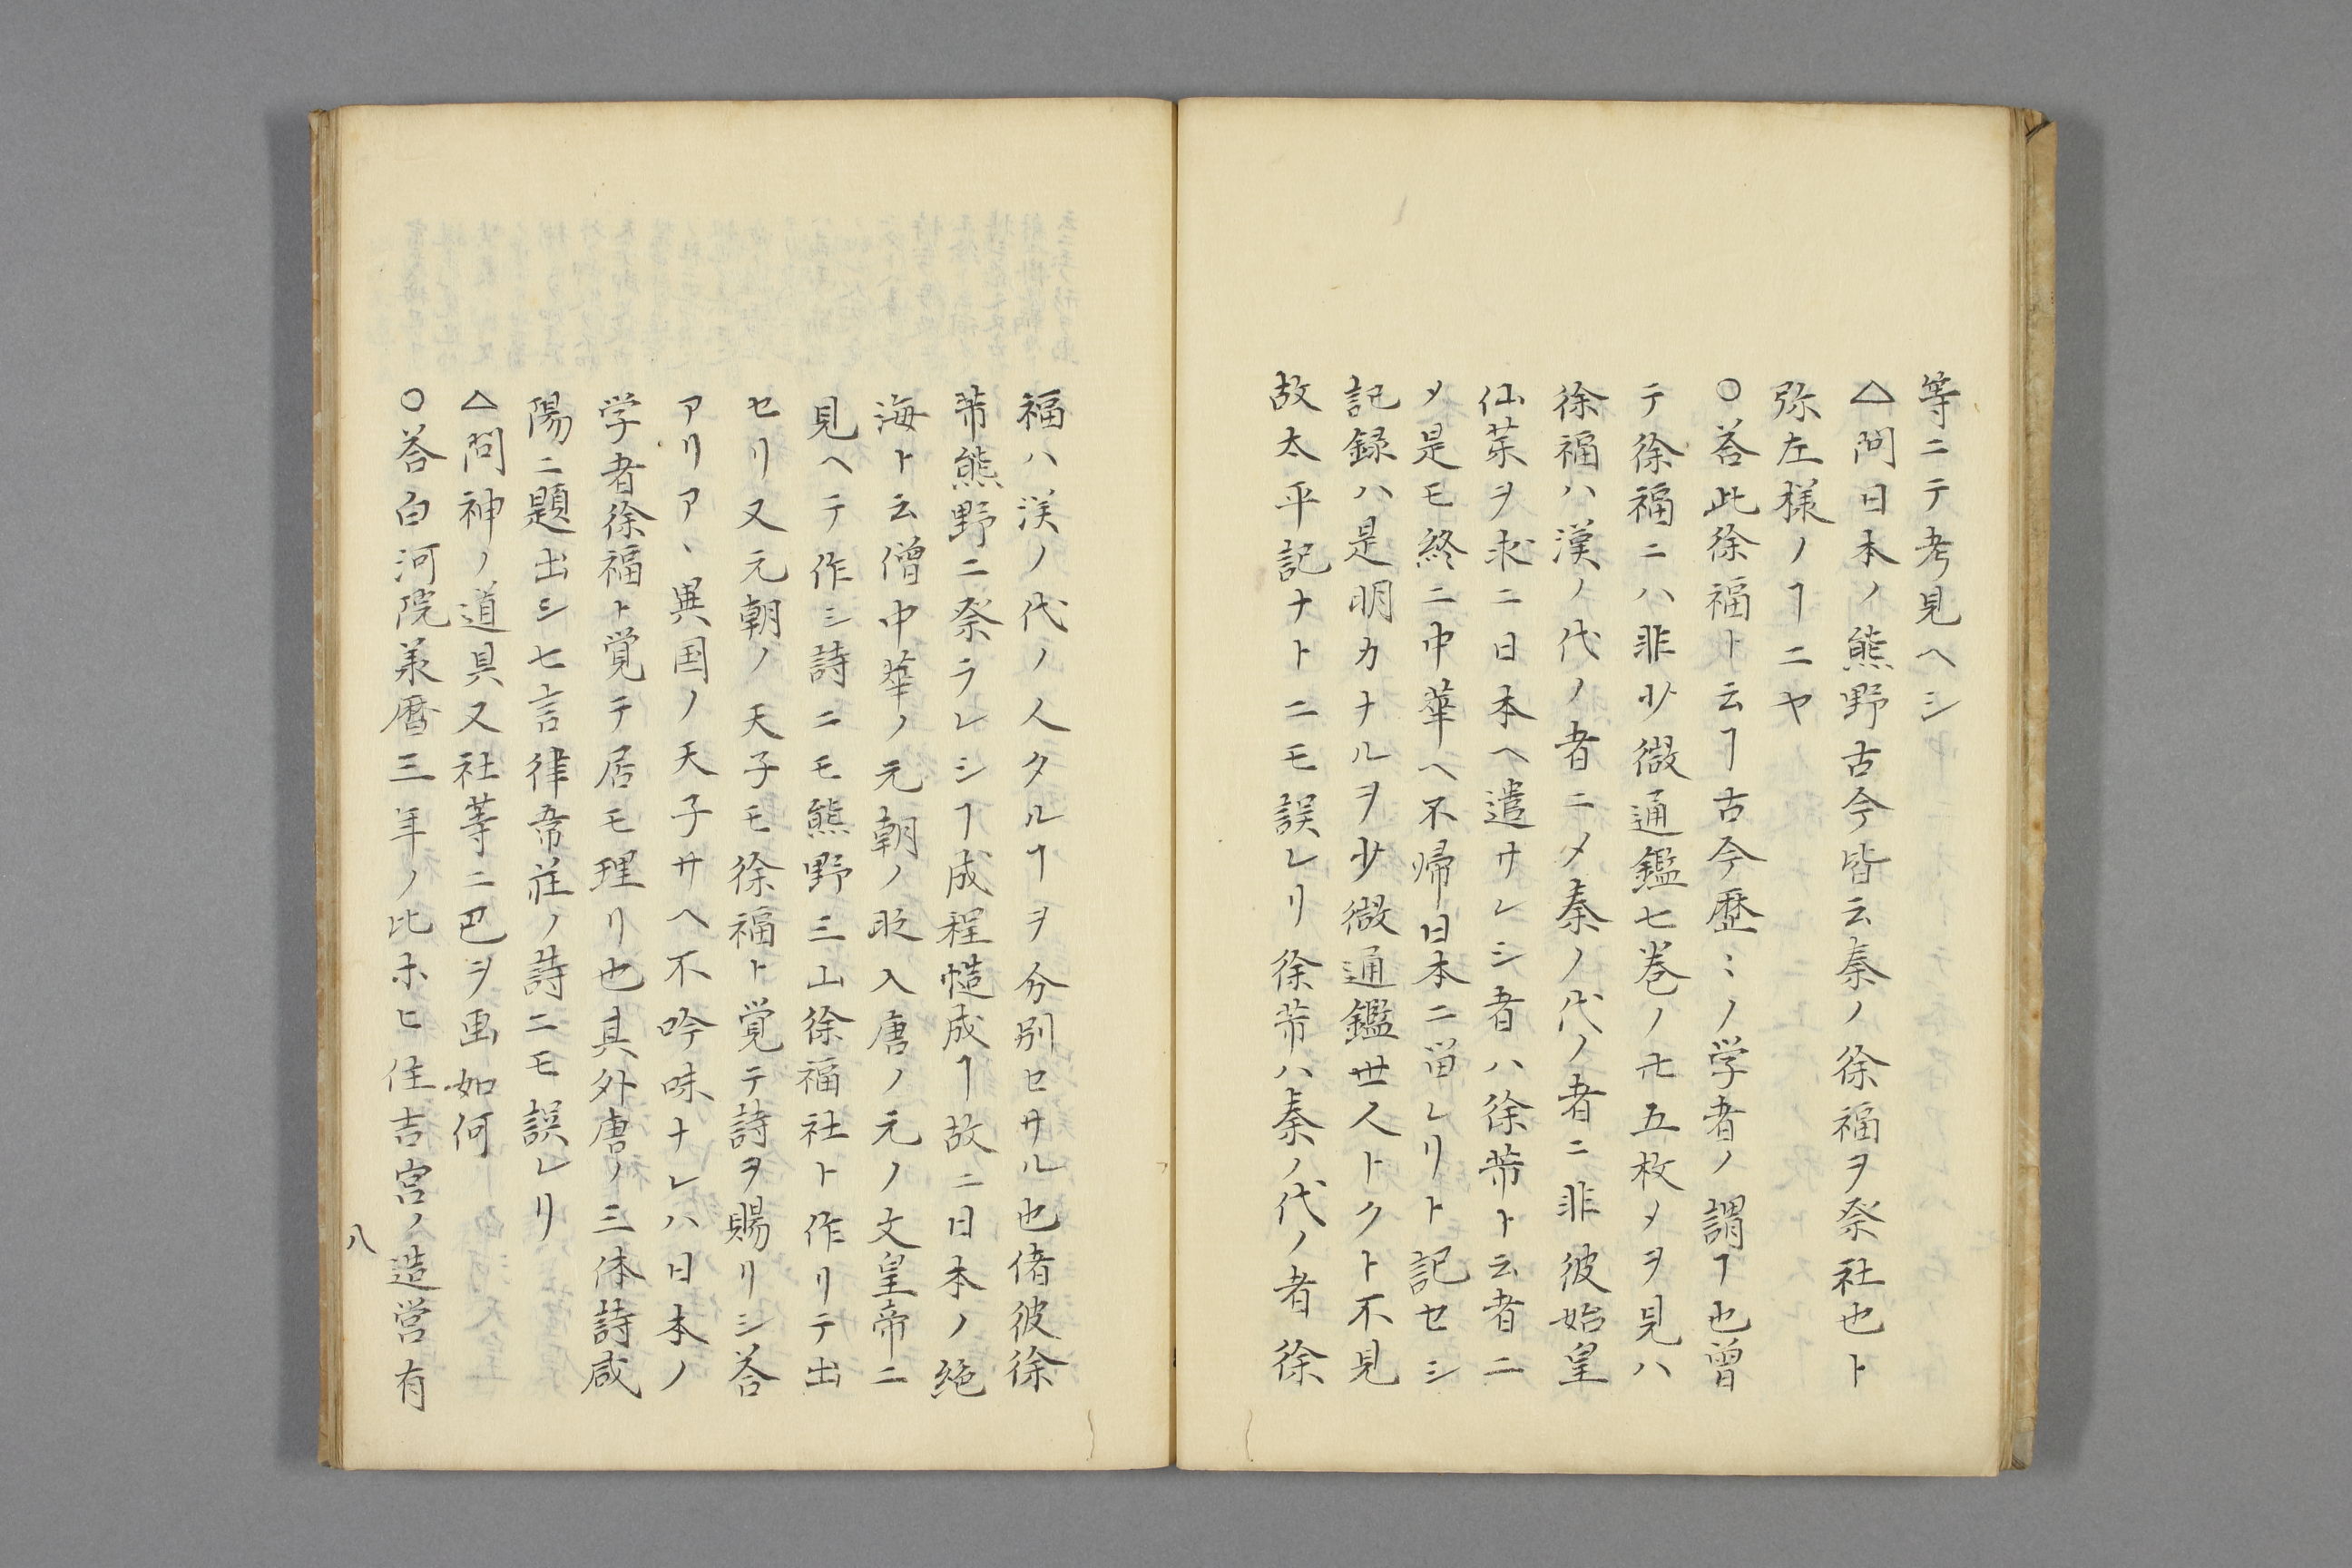 等ニテ考見ヘシ
△問日本ノ熊野古今皆云秦ノ徐福ヲ祭社也ト
弥左様ノヿニヤ
○答此徐福ト云ヿ古今歴〻ノ学者ノ謂ヿ也曽
テ徐福ニハ非少微通鑑七巻ノ卅五枚メヲ見ハ
徐福ハ漢ノ代ノ者ニメ秦ノ代ノ者ニ非彼始皇
仙茱ヲ求ニ日本ヘ遣サレシ者ハ徐芾ト云者ニ
メ是モ終ニ中華ヘ不帰日本ニ畄レリト記セシ
記録ハ是明カナルヲ少微通鑑世人トクト不見
故太平記ナトニモ誤レリ徐芾ハ秦ノ代ノ者徐
福ハ漢ノ代ノ人タルヿヲ分別セサル也偖彼徐
芾熊野ニ祭ラレシヿ成程慥成ヿ故ニ日本ノ絶
海ト云僧中華ノ元朝ノ時入唐ノ元ノ文皇帝ニ
見ヘテ作シ詩ニモ熊野三山徐福社ト作リテ出
セリ又元朝ノ天子モ徐福ト覚テ詩ヲ賜リシ答
アリアヽ異国ノ天子サヘ不吟味ナレハ日本ノ
学者徐福ト覚テ居モ理リ也其外唐ノ三体詩咸
陽ニ題出シ七言律韋荘ノ詩ニモ誤レリ
△問神ノ道具又社等ニ巴ヲ画如何
○答白河院承暦三年ノ比ホヒ住吉宮ノ造営有
八